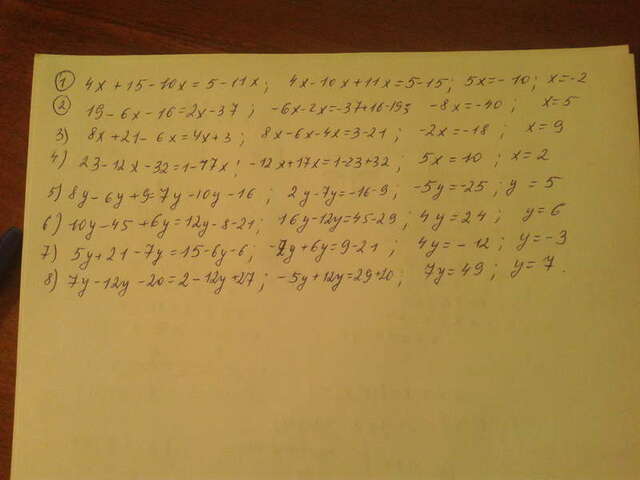 1 4x + 15 - 10x = 5 - 11x ; 4x - 10x + 11x = 5 - 15 ; 5x = - 10 ; x = -2
2 19 - 6x - 16 = 2x - 37 ; -6x - 2x = -37 + 16 - 19 ; -8x = -40 ; x = 5
3) 8x + 21 - 6x = 4x + 3 ; 8x - 6x - 4x = 3 - 21 ; -2x = -18 ; x = 9
4) 23 - 12x - 32 = 1 - 17x ; -12x + 17x = 1 - 23 + 32 ; 5x = 10 ; x = 2
5) 8y - 6y + 9 = 7y - 10y - 16 ; 2y - 7y = -16 - 9 ; -5y = -25 ; y = 5
6) 10y - 45 + 6y = 12y - 8 - 21 ; 16y - 12y = 45 - 29 ; 4y = 24 ; y = 6
7) 5y + 21 - 7y = 15 - 6y - 6 ; -2y + 6y = 9 - 21 ; 4y = - 12 ; y = -3
8) 7y - 12y - 20 = 2 - 12y + 27 ; -5y + 12y = 29 + 20 ; 7y = 49 ; y = 7 .